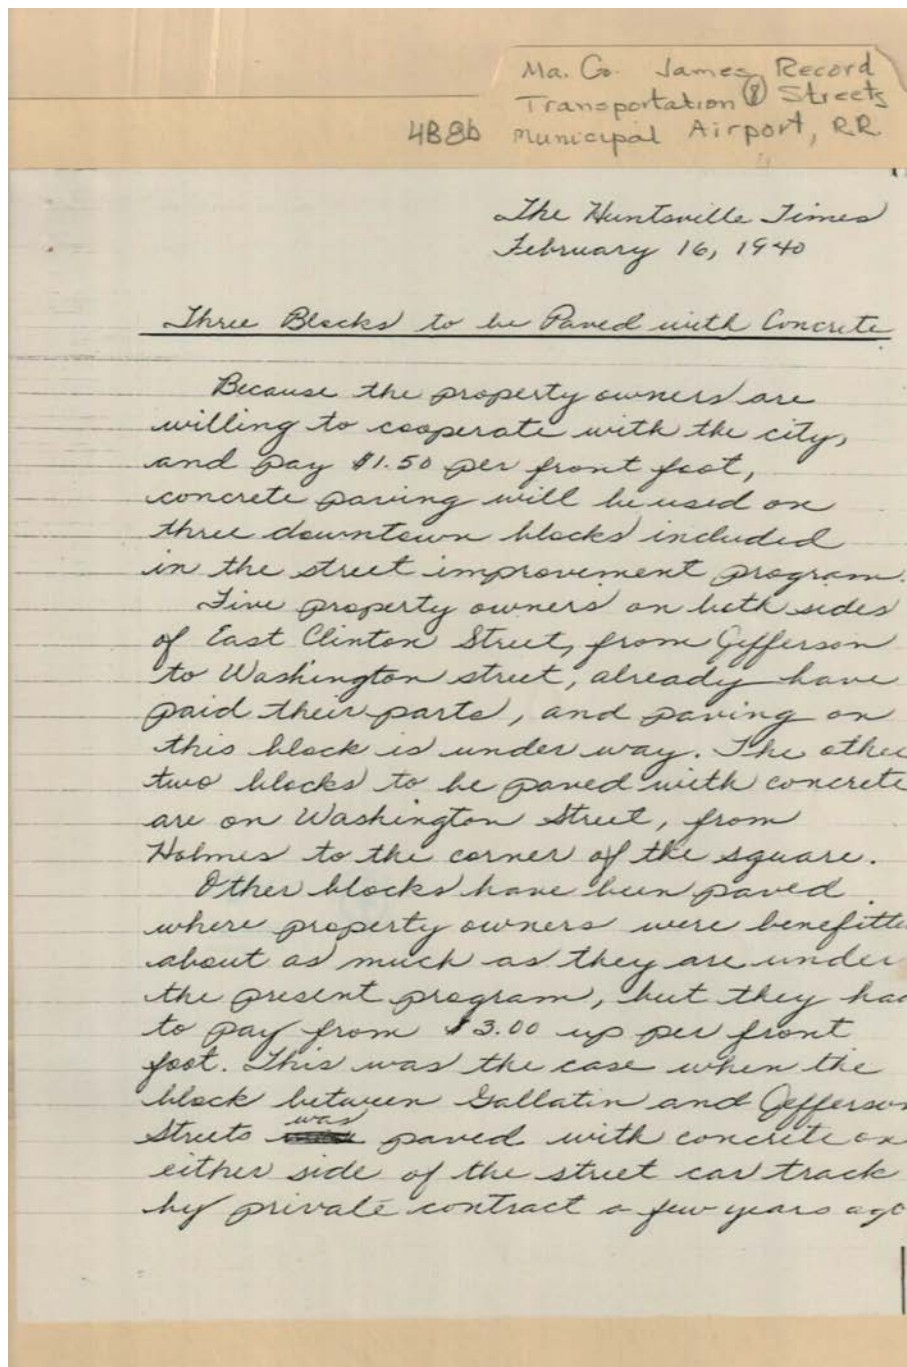 Ma. Co. James Record
Transportation & Streets
4B8b Municipal Airport, R.R.
The Huntsville Times
February 16, 1940
Three Blocks to be Paved with Concrete
Because the property owners are
willing to cooperate with the city,
and pay $1.50 per front foot,
concrete paving will be used on
three downtown blocks included
in the street improvement program.
Five property owners on both sides
of East Clinton Street, from Jefferson
to Washington street, already have
paid their parts, and paving on
this block is under way. The othe
two blocks to be paved with concrete
are on Washington Street, from
Holmes to the corner of the square.
Other blocks have been paved
where property owners were benefitte
about as much as they are under
the present program, but they had
to pay from $3.00 up per front
foot. This was the case when the
block between Gallatin and Jefferson
Streets was paved with concrete on
either side of the street car track
by private contract a few years ago